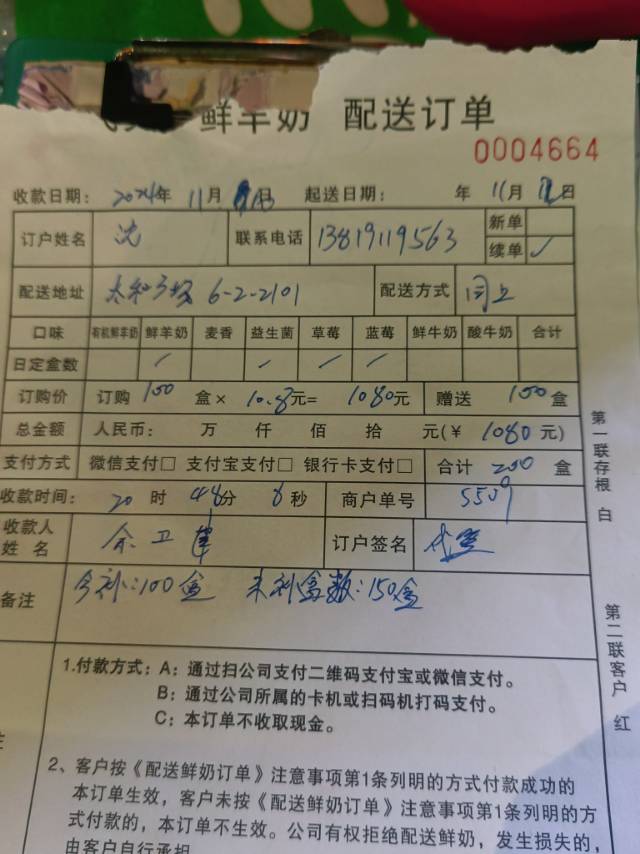 鲜羊奶 配送订单
0004664
收款日期: 2024年 11月 日 起送日期: 年 11月 12日
订户姓名 沈 联系电话 13819119563 新单
续单 ✓
配送地址 太和 6-2-2101 配送方式 同上
口味 有机鲜羊奶 鲜羊奶 麦香 益生菌 草莓 蓝莓 鲜牛奶 酸牛奶 合计
日定盒数 ✓ ✓ ✓ ✓
订购价 订购 100 盒× 10.8元= 1080元 赠送 100 盒
总金额 人民币: 万 仟 佰 拾 元(¥ 1080 元)
支付方式 微信支付□ 支付宝支付□ 银行卡支付□ 合计 200 盒
收款时间: 20 时 48分 8秒 商户单号 5509
收款人
姓 名 余卫 订户签名
备注 今补:100盒 未利盒数:150盒
1.付款方式: A: 通过扫公司支付二维码支付宝或微信支付。
B: 通过公司所属的卡机或扫码机打码支付。
C: 本订单不收取现金。
2、客户按《配送鲜奶订单》注意事项第1条列明的方式付款成功的
本订单生效,客户未按《配送鲜奶订单》注意事项第1条列明的方
式付款的,本订单不生效。公司有权拒绝配送鲜奶,发生损失的,
由客户自行承担
第一联存根 白
第二联客户 红